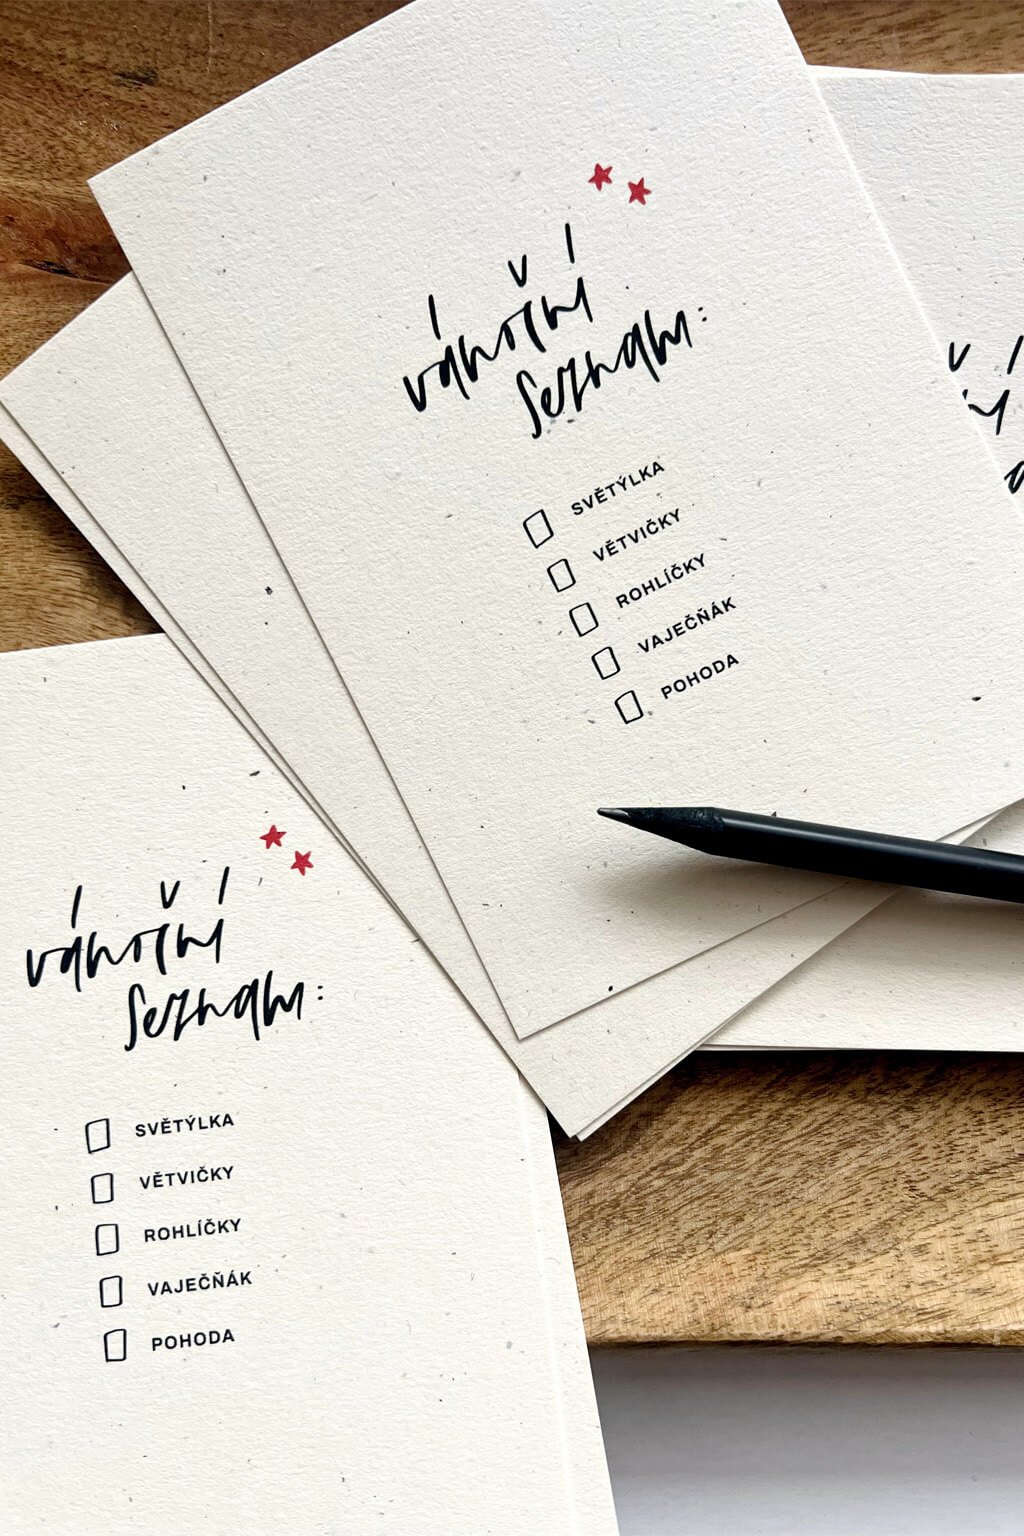 vánoční
seznam:
SVĚTÝLKA
VĚTVIČKY
ROHLÍČKY
VAJEČŇÁK
POHODA
vánoční
seznam:
SVĚTÝLKA
VĚTVIČKY
ROHLÍČKY
VAJEČŇÁK
POHODA